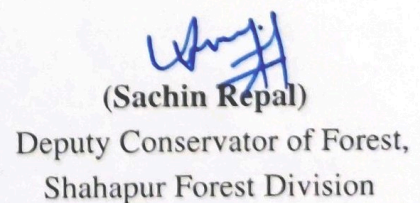 (Sachin Repal)
Deputy Conservator of Forest,
Shahapur Forest Division